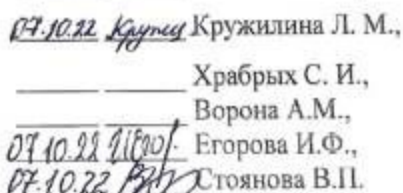 07.10.22 Кружилина Л. М.,
Храбрых С. И.,
Ворона А.М.,
07.10.22 Егорова И.Ф.,
07.10.22 Стоянова В.П.